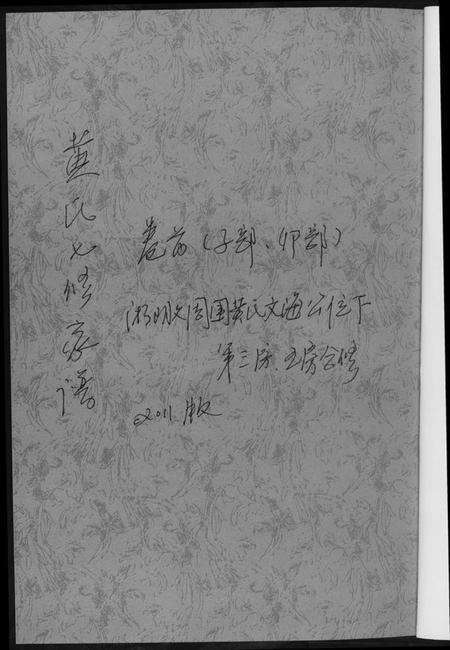 黄氏七修家谱
卷首（子部、卯部）
湖明文周围黄氏文海公位下
第三房、五房合修
2011版